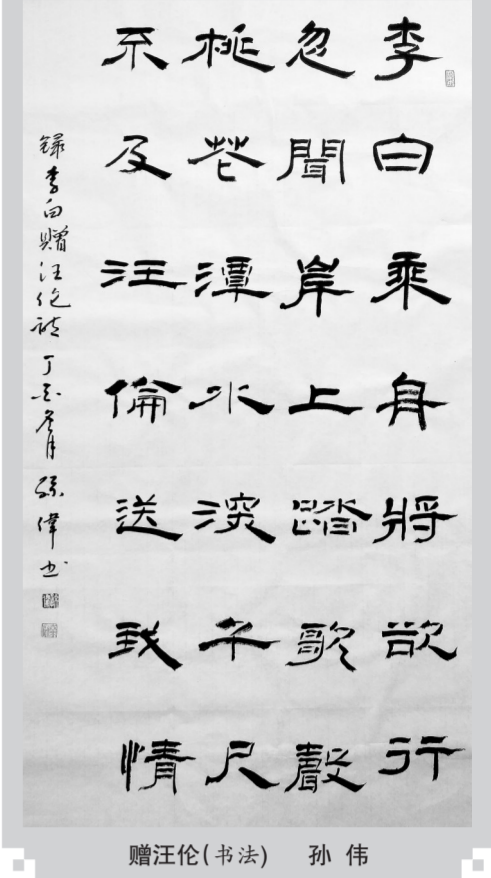 李白乘舟將欲行
忽聞岸上踏歌聲
桃花潭水深千尺
不及汪倫送我情
錄李白贈汪倫詩 丁 月 孫偉书
赠汪伦(书法) 孙 伟